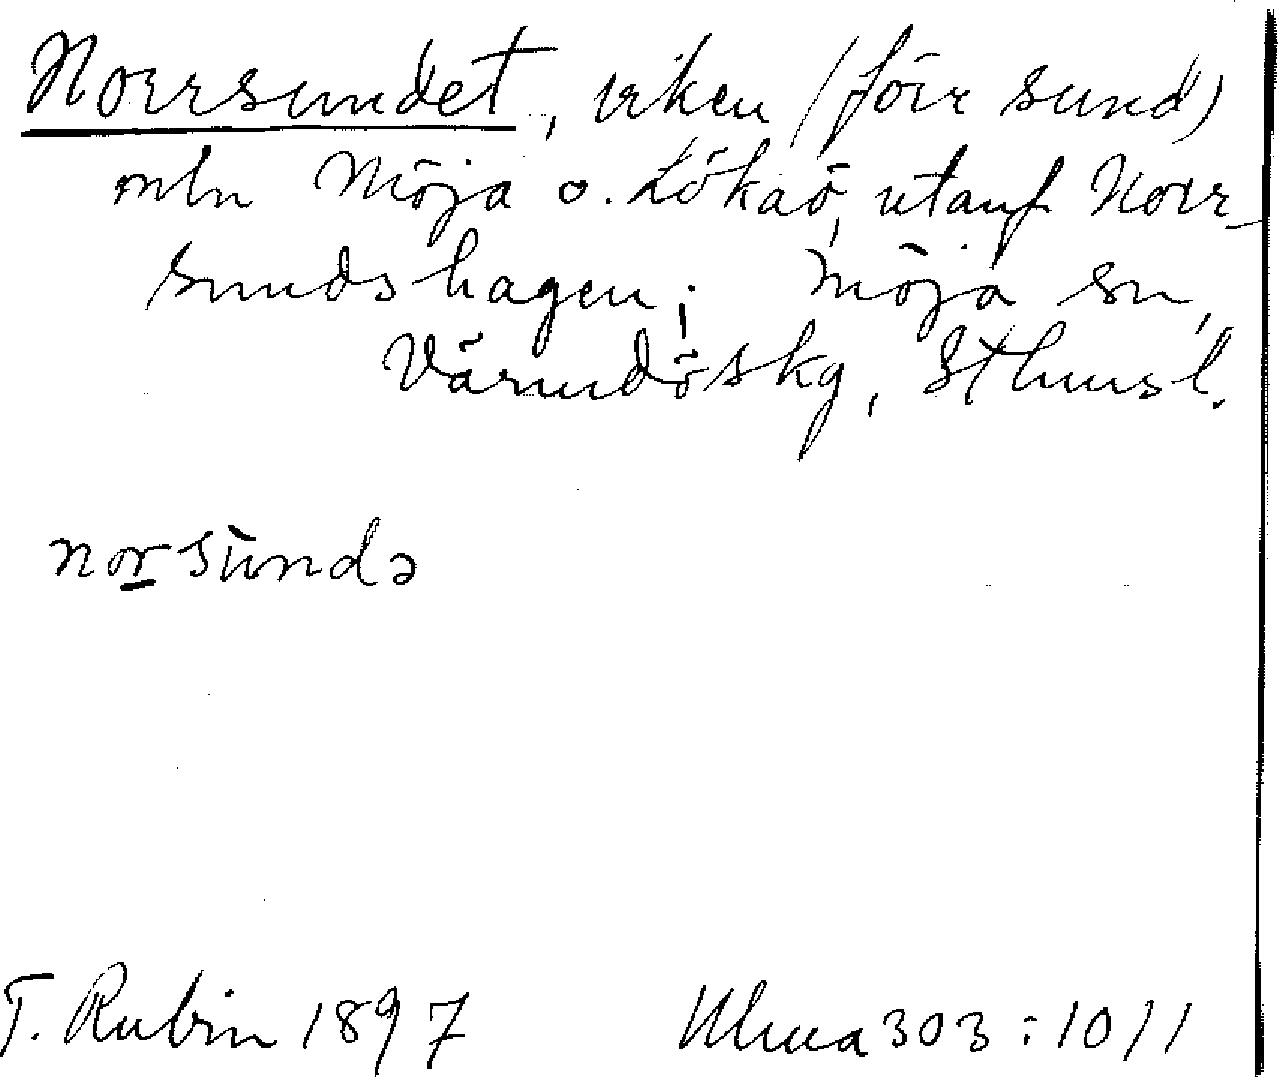 Norrsundet, viken (förr sund)
mln Möja o. Lökaö, utanf Norr-
sundshagen; Möja sn,
Värmdöskg, Sthmsl.
norsùndə
T. Rubin 1897 Ulma 303:10/1